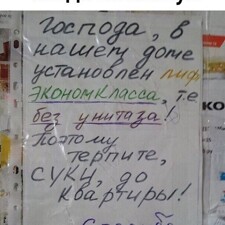 Господа, в
нашем доме
установлен лифт
ЭКОНОМКЛАССА, т.е
без унитаза!
Поэтому
терпите,
СУКИ, до
квартиры!
Спасибо
КО